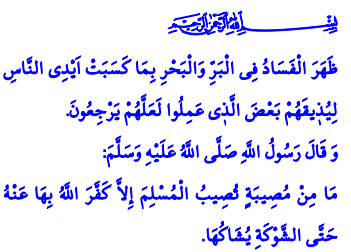 بِسْمِ اللّٰهِ الرَّحْمٰنِ الرَّحِيمِ
ظَهَرَ الْفَسَادُ فِى الْبَرِّ وَالْبَحْرِ بِمَا كَسَبَتْ اَيْدِى النَّاسِ
لِيُذٖيقَهُمْ بَعْضَ الَّذٖى عَمِلُوا لَعَلَّهُمْ يَرْجِعُونَ.
وَ قَالَ رَسُولُ اللَّهِ صَلَّى اللَّهُ عَلَيْهِ وَسَلَّمَ:
مَا مِنْ مُصِيبَةٍ تُصِيبُ الْمُسْلِمَ إِلاَّ كَفَّرَ اللَّهُ بِهَا عَنْهُ
حَتَّى الشَّوْكَةِ يُشَاكُهَا.